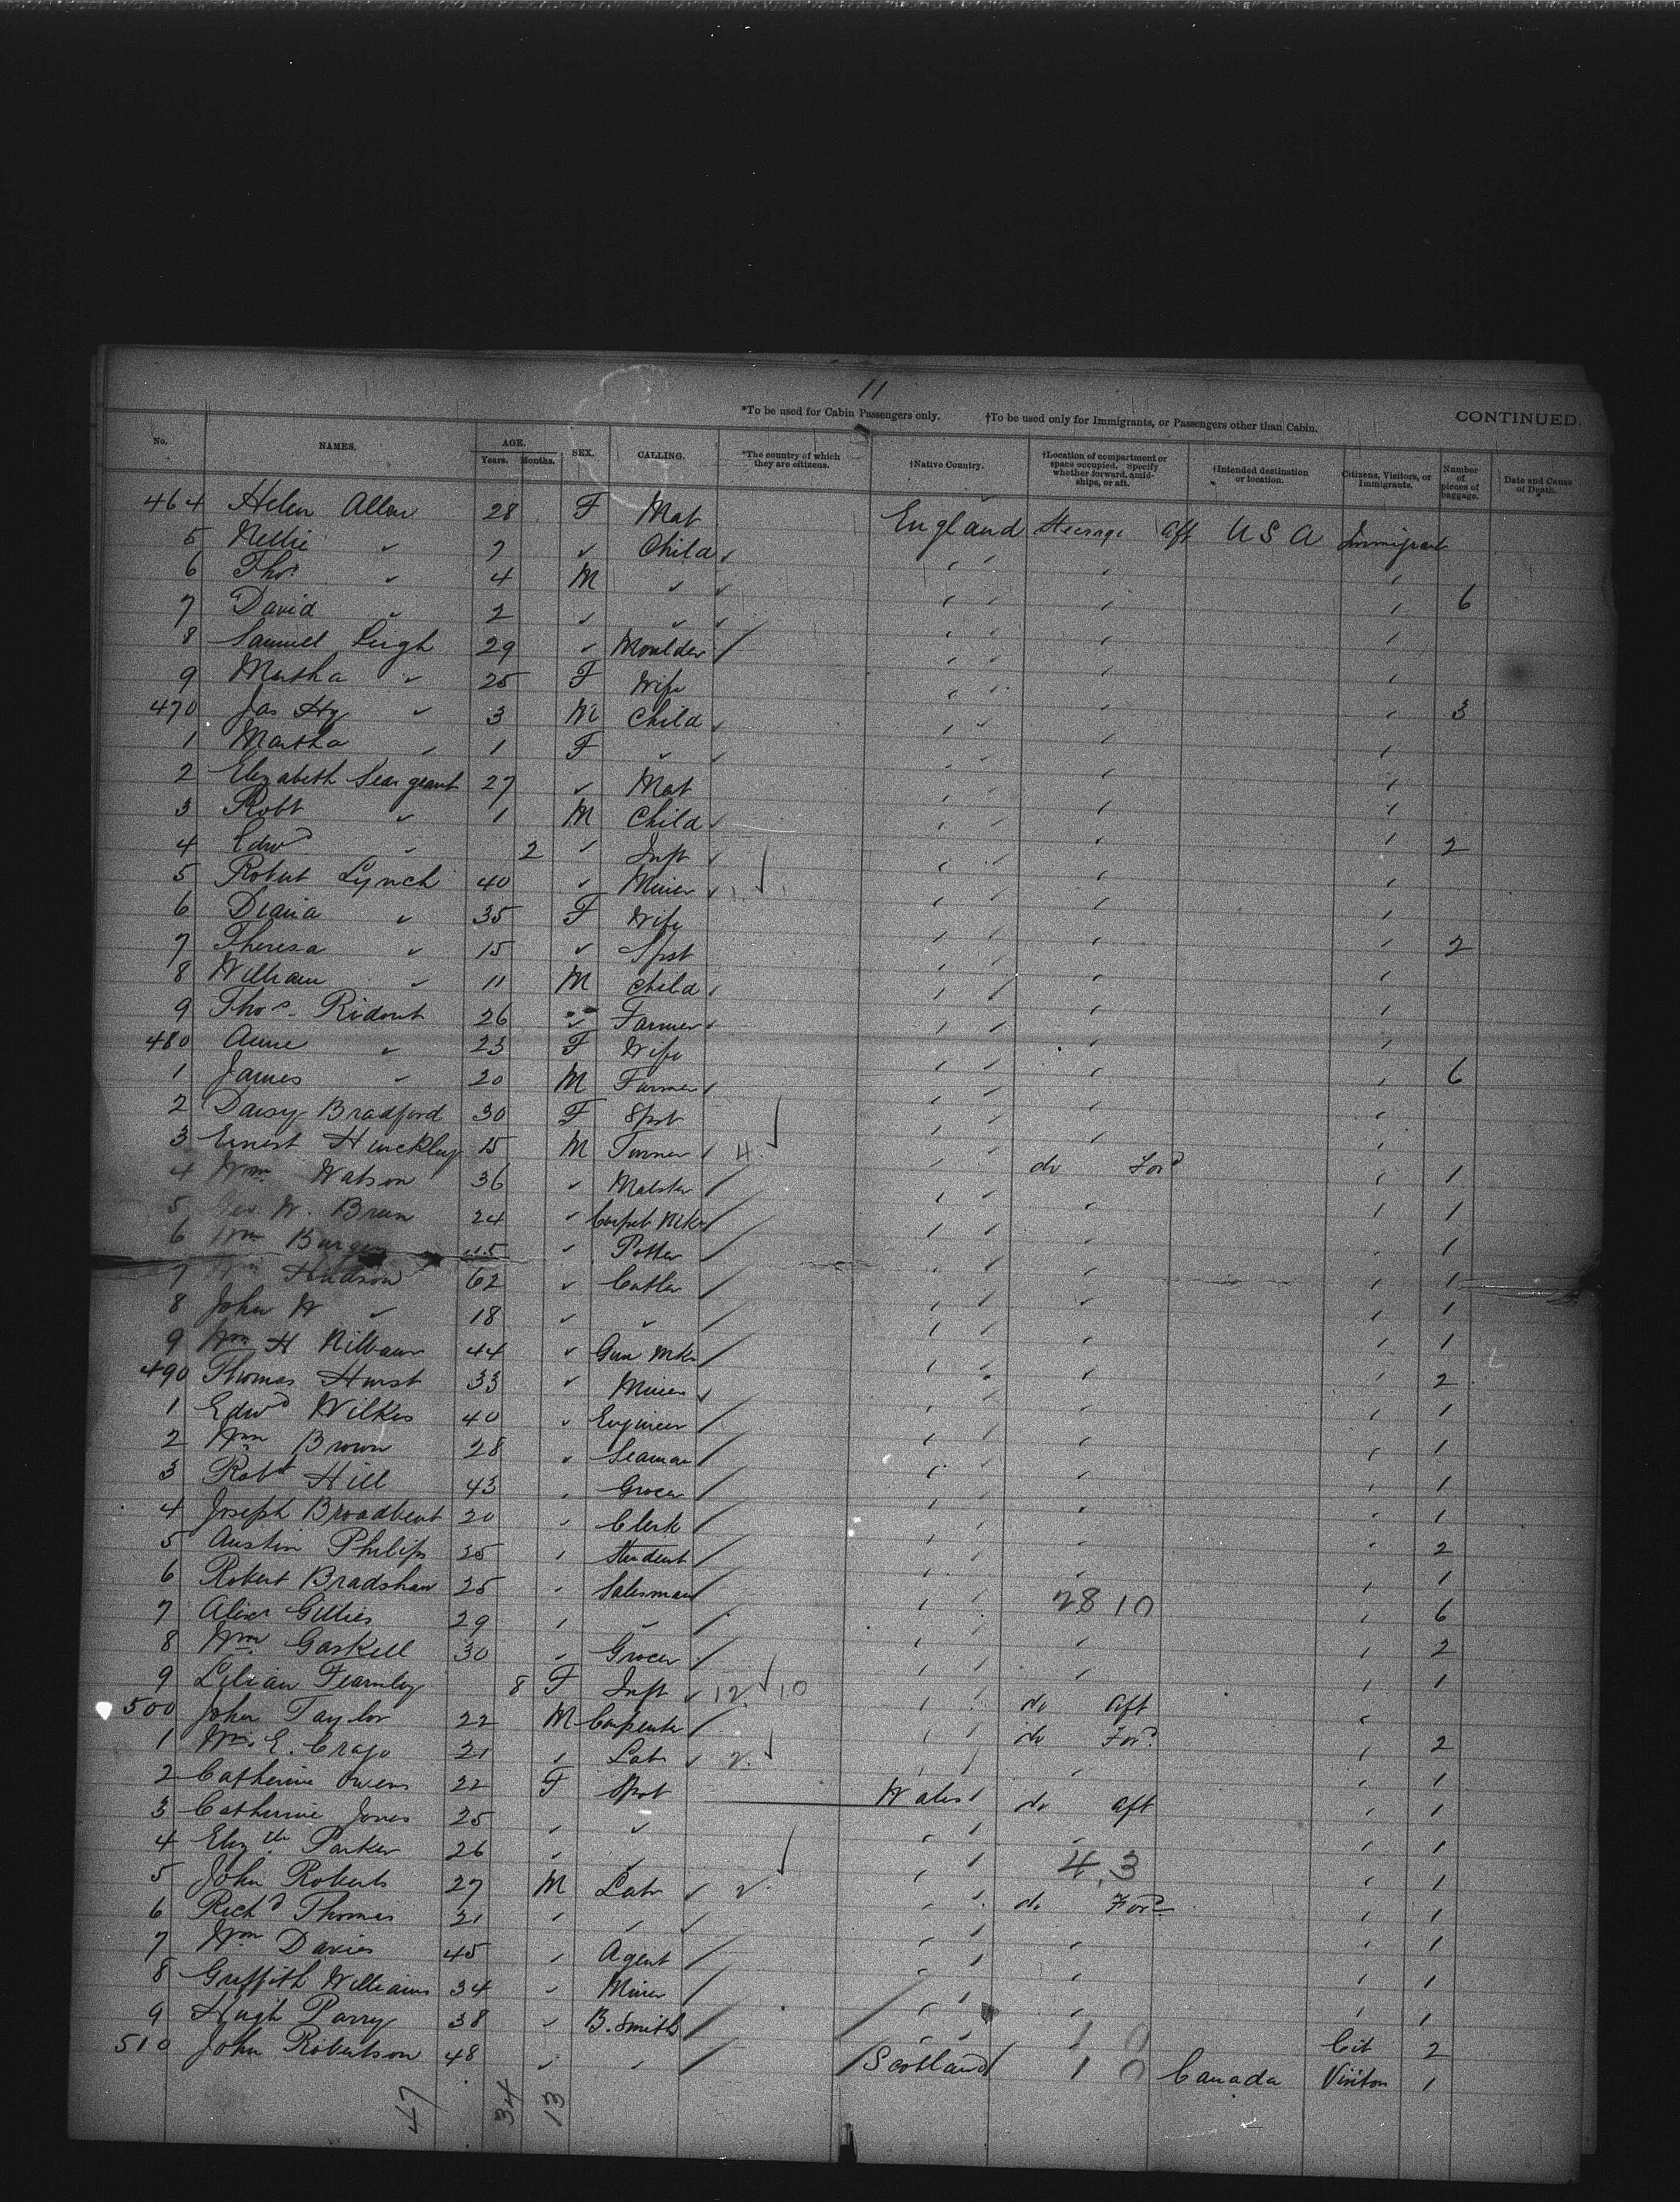 11
*To be used for Cabin Passengers only. †To be used only for Immigrants, or Passengers other than Cabin. CONTINUED.
No. NAMES. AGE. Years. Months. SEX. CALLING. *The country of which they are citizens. †Native Country. †Location of compartment or space occupied. Specify whether forward, amidships, or aft. †Intended destination or location. Citizens, Visitors, or Immigrants. Number of pieces of baggage. Date and Cause of Death.
464 Helen Allen 28 F Mat England Steerage aft U S A Immigrant
5 Nellie " 7 " Child " " "
6 Thos " 4 M " " " " 6
7 David " 2 " " " " "
8 Samuel Leigh 29 " Moulder " " "
9 Martha " 25 F Wife " " "
470 Jas Hy " 3 M Child " " " 3
1 Martha " 1 F " " " "
2 Elizabeth Seargeant 27 " Mat " " "
3 Robt " 1 M Child " " "
4 Edwd " 2 " Inft " " " 2
5 Robert Lynch 40 " Miner " " "
6 Diana " 35 F Wife " " "
7 Theresa " 15 " Spst " " " 2
8 William " 11 M Child " " "
9 Thos. Ridout 26 " Farmer " " "
480 Anne " 23 F Wife " " "
1 James " 20 M Farmer " " " 6
2 Daisy Bradford 30 F Spst " " "
3 Ernest Hinckley 15 M Turner 4 " do Ford "
4 Wm Watson 36 " Malster " " " 1
5 Geo. W. Breen 24 " Carpet Mkr " " " 1
6 Wm " Potter " " " 1
7 Wm Hudson 62 " Cutler " " " 1
8 John W " 18 " " " " " 1
9 Wm H 44 " Gun Mkr " " " 1
490 Thomas Hurst 33 " Miner " " " 2
1 Edwd Wilkes 40 " Engineer " " " 1
2 Wm Brown 28 " Seaman " " " 1
3 Robt Hill 43 " Grocer " " " 1
4 Joseph Broadbent 20 " Clerk " " " 1
5 Austin Philips 25 " Student " " " 2
6 Robert Bradshaw 25 " Salesman " 28 10 " 1
7 Alexr Gillies 29 " " " " " 6
8 Wm Gaskell 30 " Grocer " " " 2
9 Lilian Fearnley 8 F Inft 12 10 " do aft " 1
500 John Taylor 22 M Carpenter " do Ford "
1 Wm. E. Crajo 21 " Labr 2 " " " 2
2 Catherine Owens 22 F Spst Wales do aft " 1
3 Catherine Jones 25 " " " " " 1
4 Elizth Parker 26 " " " 4 3 " 1
5 John Roberts 27 M Labr 2 " do Ford " 1
6 Richd Thomas 21 " " " " " 1
7 Wm Davies 45 " Agent " " " 1
8 Griffith Williams 34 " Miner " " " 1
9 Hugh Parry 38 " B. Smith " 1 0 Cit 2
510 John Robertson 48 " " Scotland 1 0 Canada Visitor 1
47 34 13